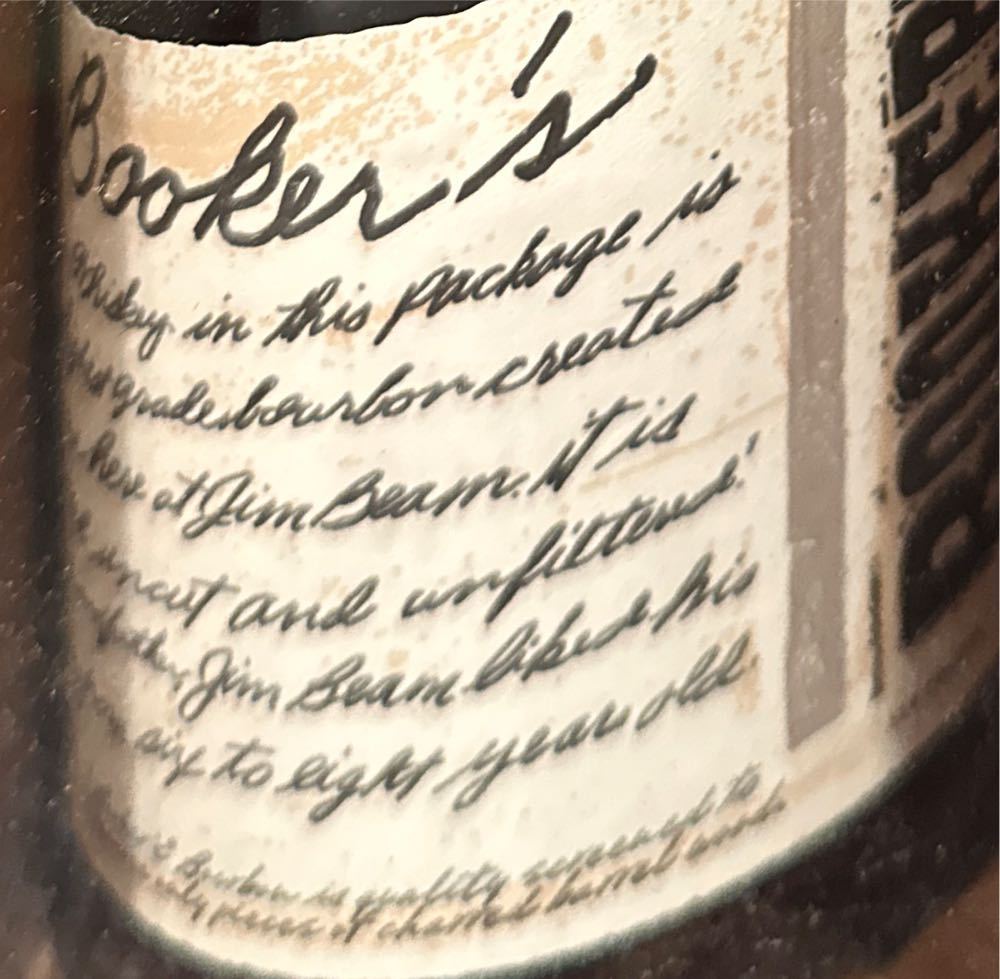 Booker's
in this package is
grade bourbon created
here at Jim Beam. It is
uncut and unfiltered.
Jim Beam liked his
six to eight years old
Bourbon is quality screened to
pieces of charred barrel wood.
BOURB